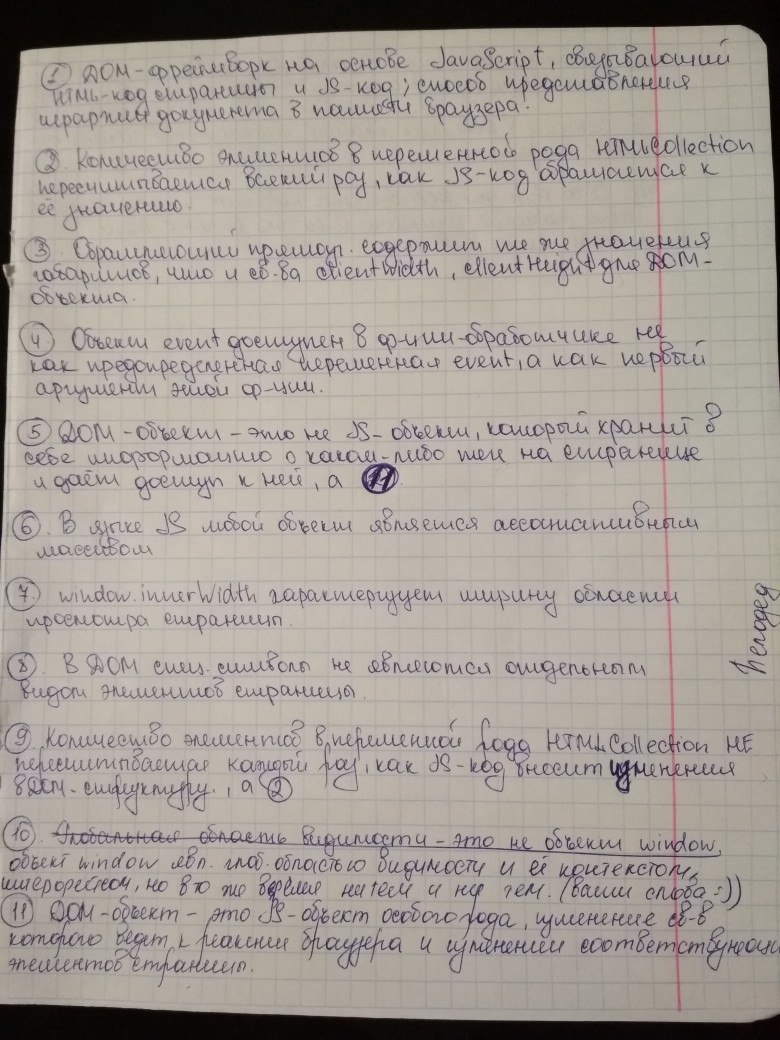 ① ДОМ-фреймворк на основе JavaScript, связывающий
HTML-код страницы и JS-код; способ представления
иерархии документа в памяти браузера.
②. Количество элементов в переменной рода HTMLCollection
пересчитывается всякий раз, как JS-код обращается к
её значению.
③. Обрамляющий прямоуг. содержит те же значения
габаритов, что и св-ва clientWidth, clientHeight для ДОМ-
объекта.
④. Объект event доступен в ф-ции-обработчике не
как предопределенная переменная event, а как первый
аргумент этой ф-ции.
⑤ ДОМ-объект - это не JS-объект, который хранит в
себе информацию о каком-либо теге на странице
и даёт доступ к ней, а ⑪
⑥. В языке JS любой объект является ассоциативным
массивом
⑦. window.innerWidth характеризует ширину области
просмотра страницы.
⑧. В ДОМ спец. символы не являются отдельным
видом элементов страницы.
⑨ Количество элементов в переменной рода HTMLCollection НЕ
пересчитывается каждый раз, как JS-код вносит изменения
в ДОМ-структуру., а ②
⑩. Глобальная область видимости - это не объект window,
объект window явл. глоб. областью видимости и её контекстом,
но в то же время ни тем и ни тем. (ваши слова :))
⑪ ДОМ-объект - это JS-объект особого рода, изменение св-в
которого ведет к реакции браузера и изменении соответствующих
элементов страницы.